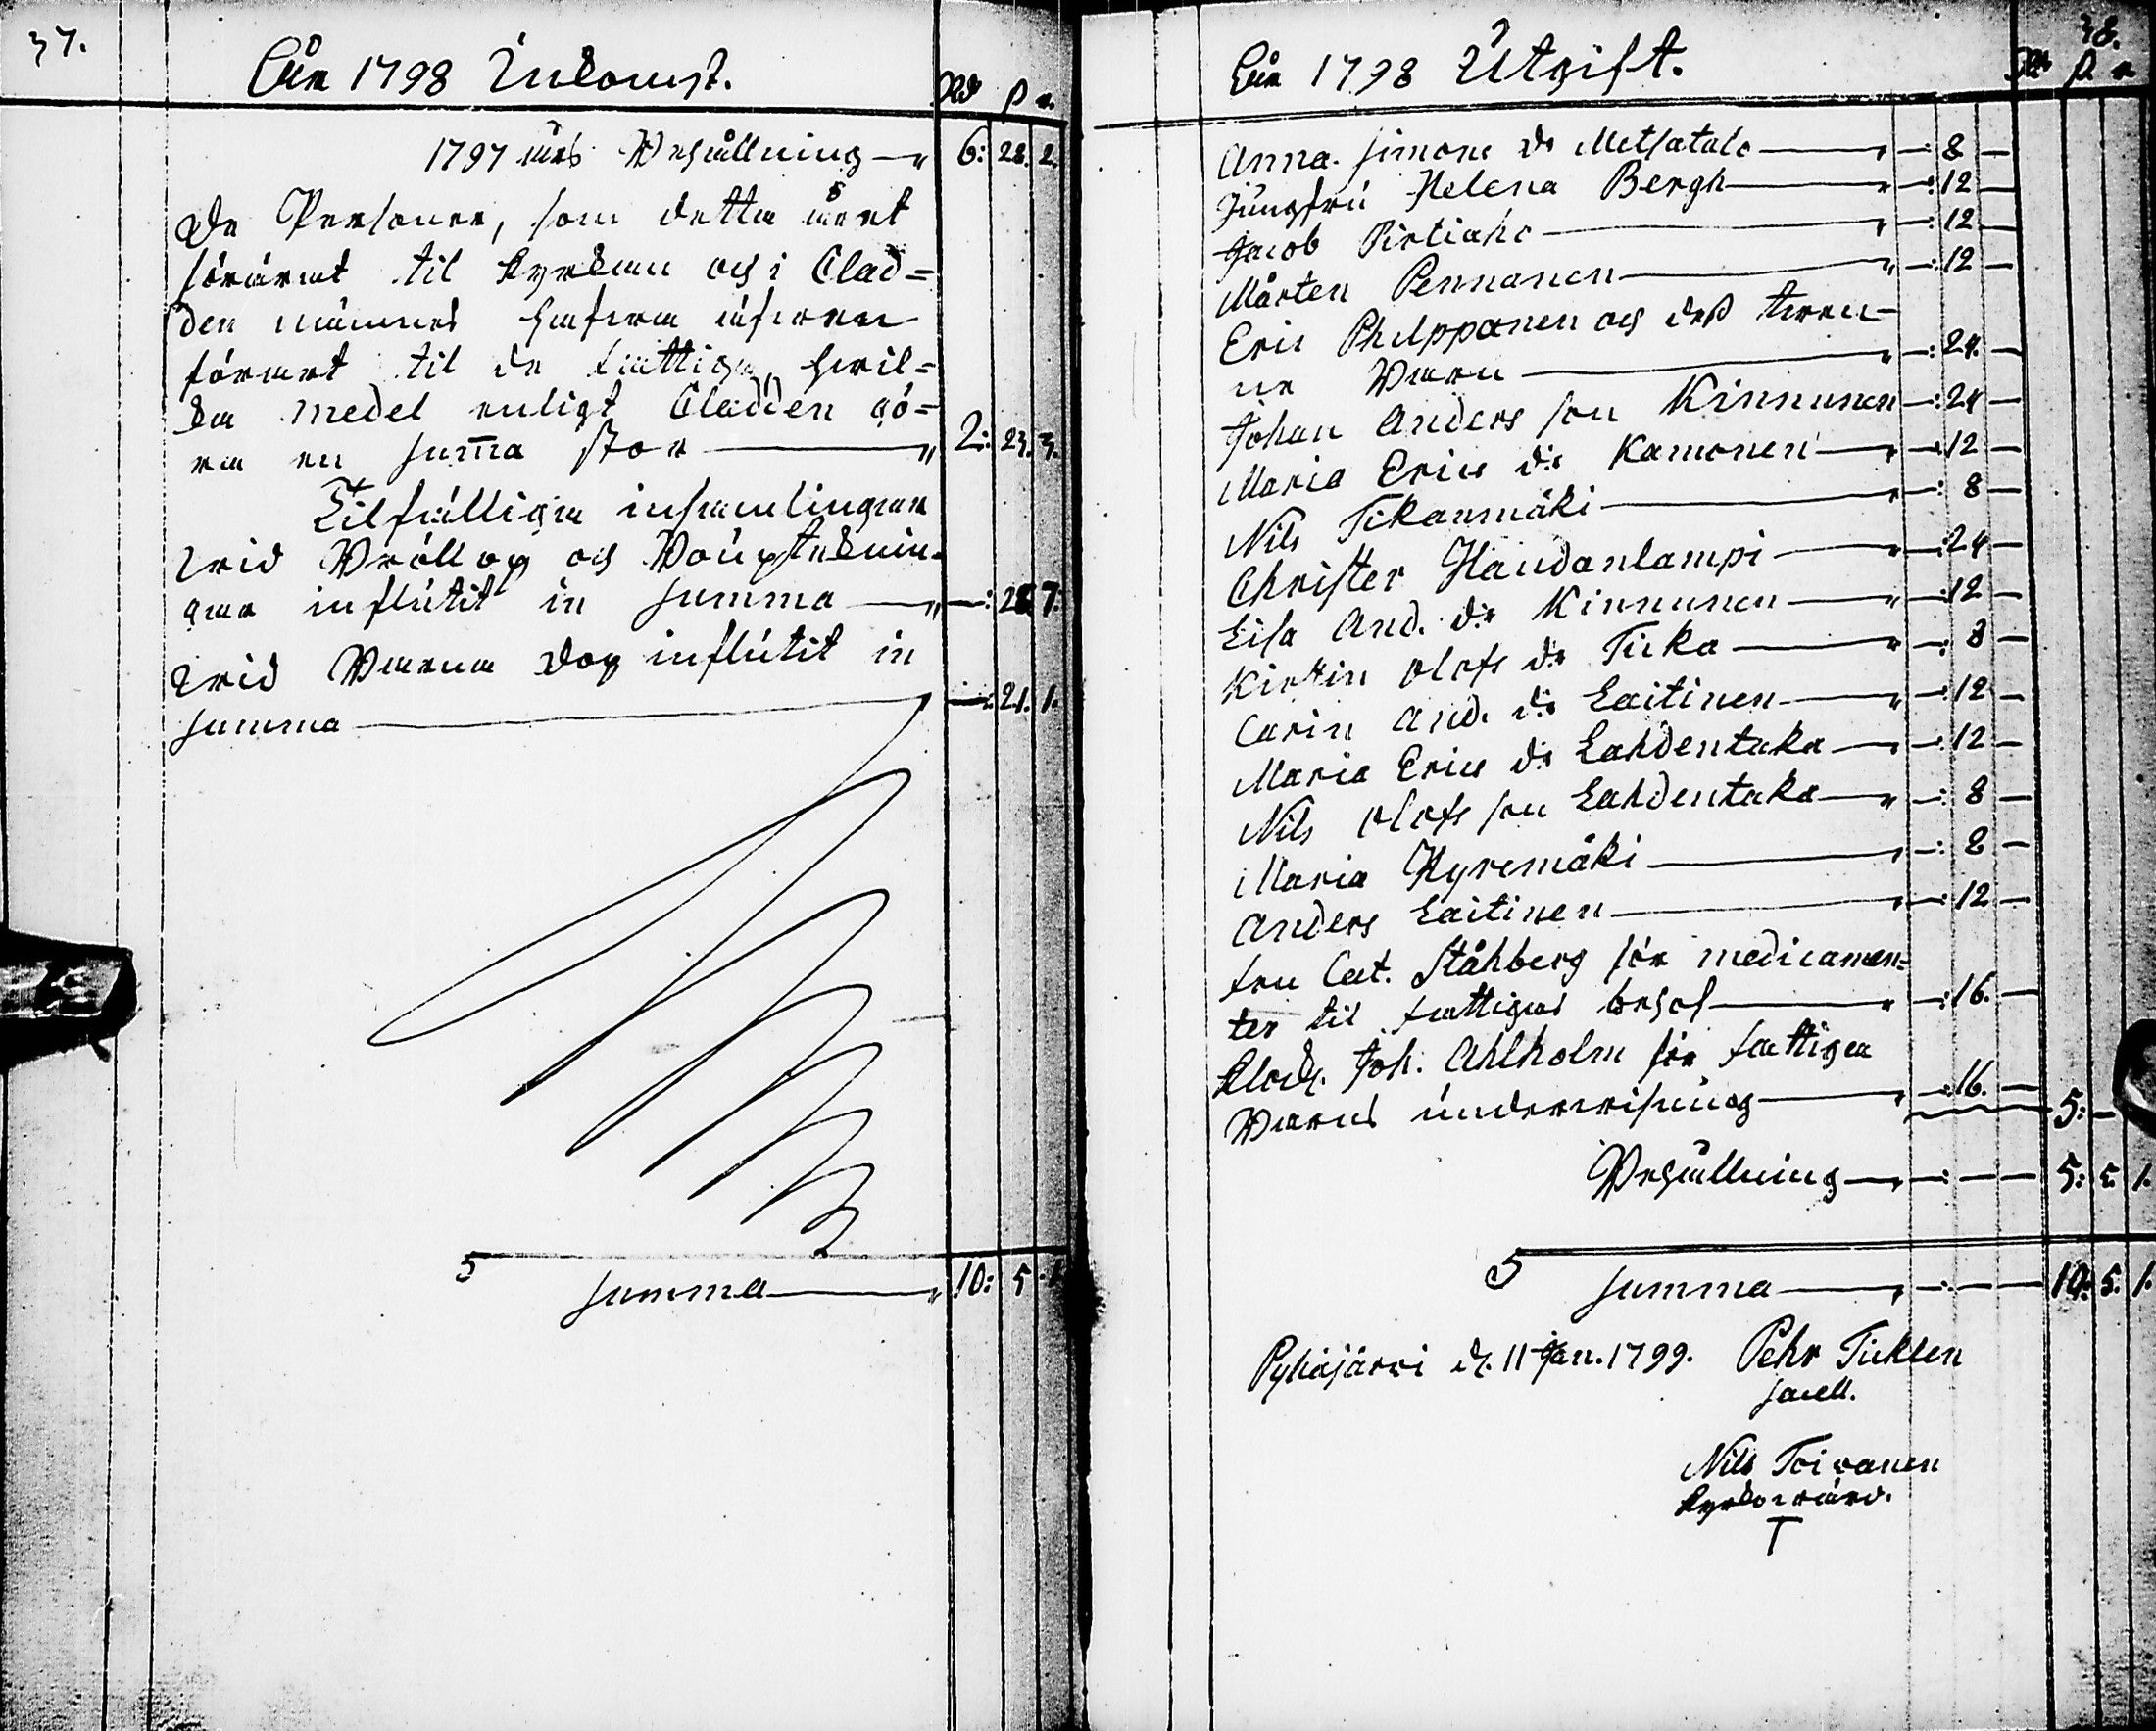 37.
År 1798 Inkomst.
Rd ß r.
1797 års Behållning — 6: 28. 2.
De Personer, som detta året
förärat til Kyrkan och i Clad=
den nämnes hafwa äfwen
förärat til de fattiga, hwil=
ka medel enligt Cladden gö=
ra en summa stor — 2: 23. 3.
Tilfälliga insamlingar
wid Bröllop och Barns
gar influtit in summa — —: 28. 7.
wid Barna dop influtit in
summa — —: 21. 1.
S
summa — 10: 5. 1
38.
År 1798 Utgift.
Rd ß r
Anna Simons dr Metsatalo — —: 8 —
Jungfru Helena Bergh — —: 12 —
Jacob Pirtiaho — —: 12 —
Mårten Pennanen — —: 12 —
Eric Philppanen och dess twen-
ne Barn — —: 24. —
Johan Anders son Kinnunen —: 24 —
Maria Erics dr Kamonen — —: 12 —
Nils Tikanmäki — —: 8 —
Christer Haudanlampi — —: 24 —
Lisa And. dr Kinnunen — —: 12 —
Kirstin Olofs dr Ticka — —: 8 —
Carin And. dr Laitinen — —: 12 —
Maria Erics dr Lahdentaka — —: 12 —
Nils Olofs son Lahdentaka — —: 8 —
Maria Hyremäki — —: 8 —
Anders Laitinen — —: 12 —
Fru Cat. Ståhberg för medicamen=
ter til fattigas behof — —: 16. —
Klock. Joh. Ahlholm för fattiga
Barns underwisning — —: 16. — 5: —
Behållning — —: — — 5: 5. 1.
S
summa — —: — — 10: 5. 1.
Pyhäjärwi d. 11 Jan. 1799. Pehr Ticklen
sacell.
Nils Toivanen
Kyrkowärd.
T